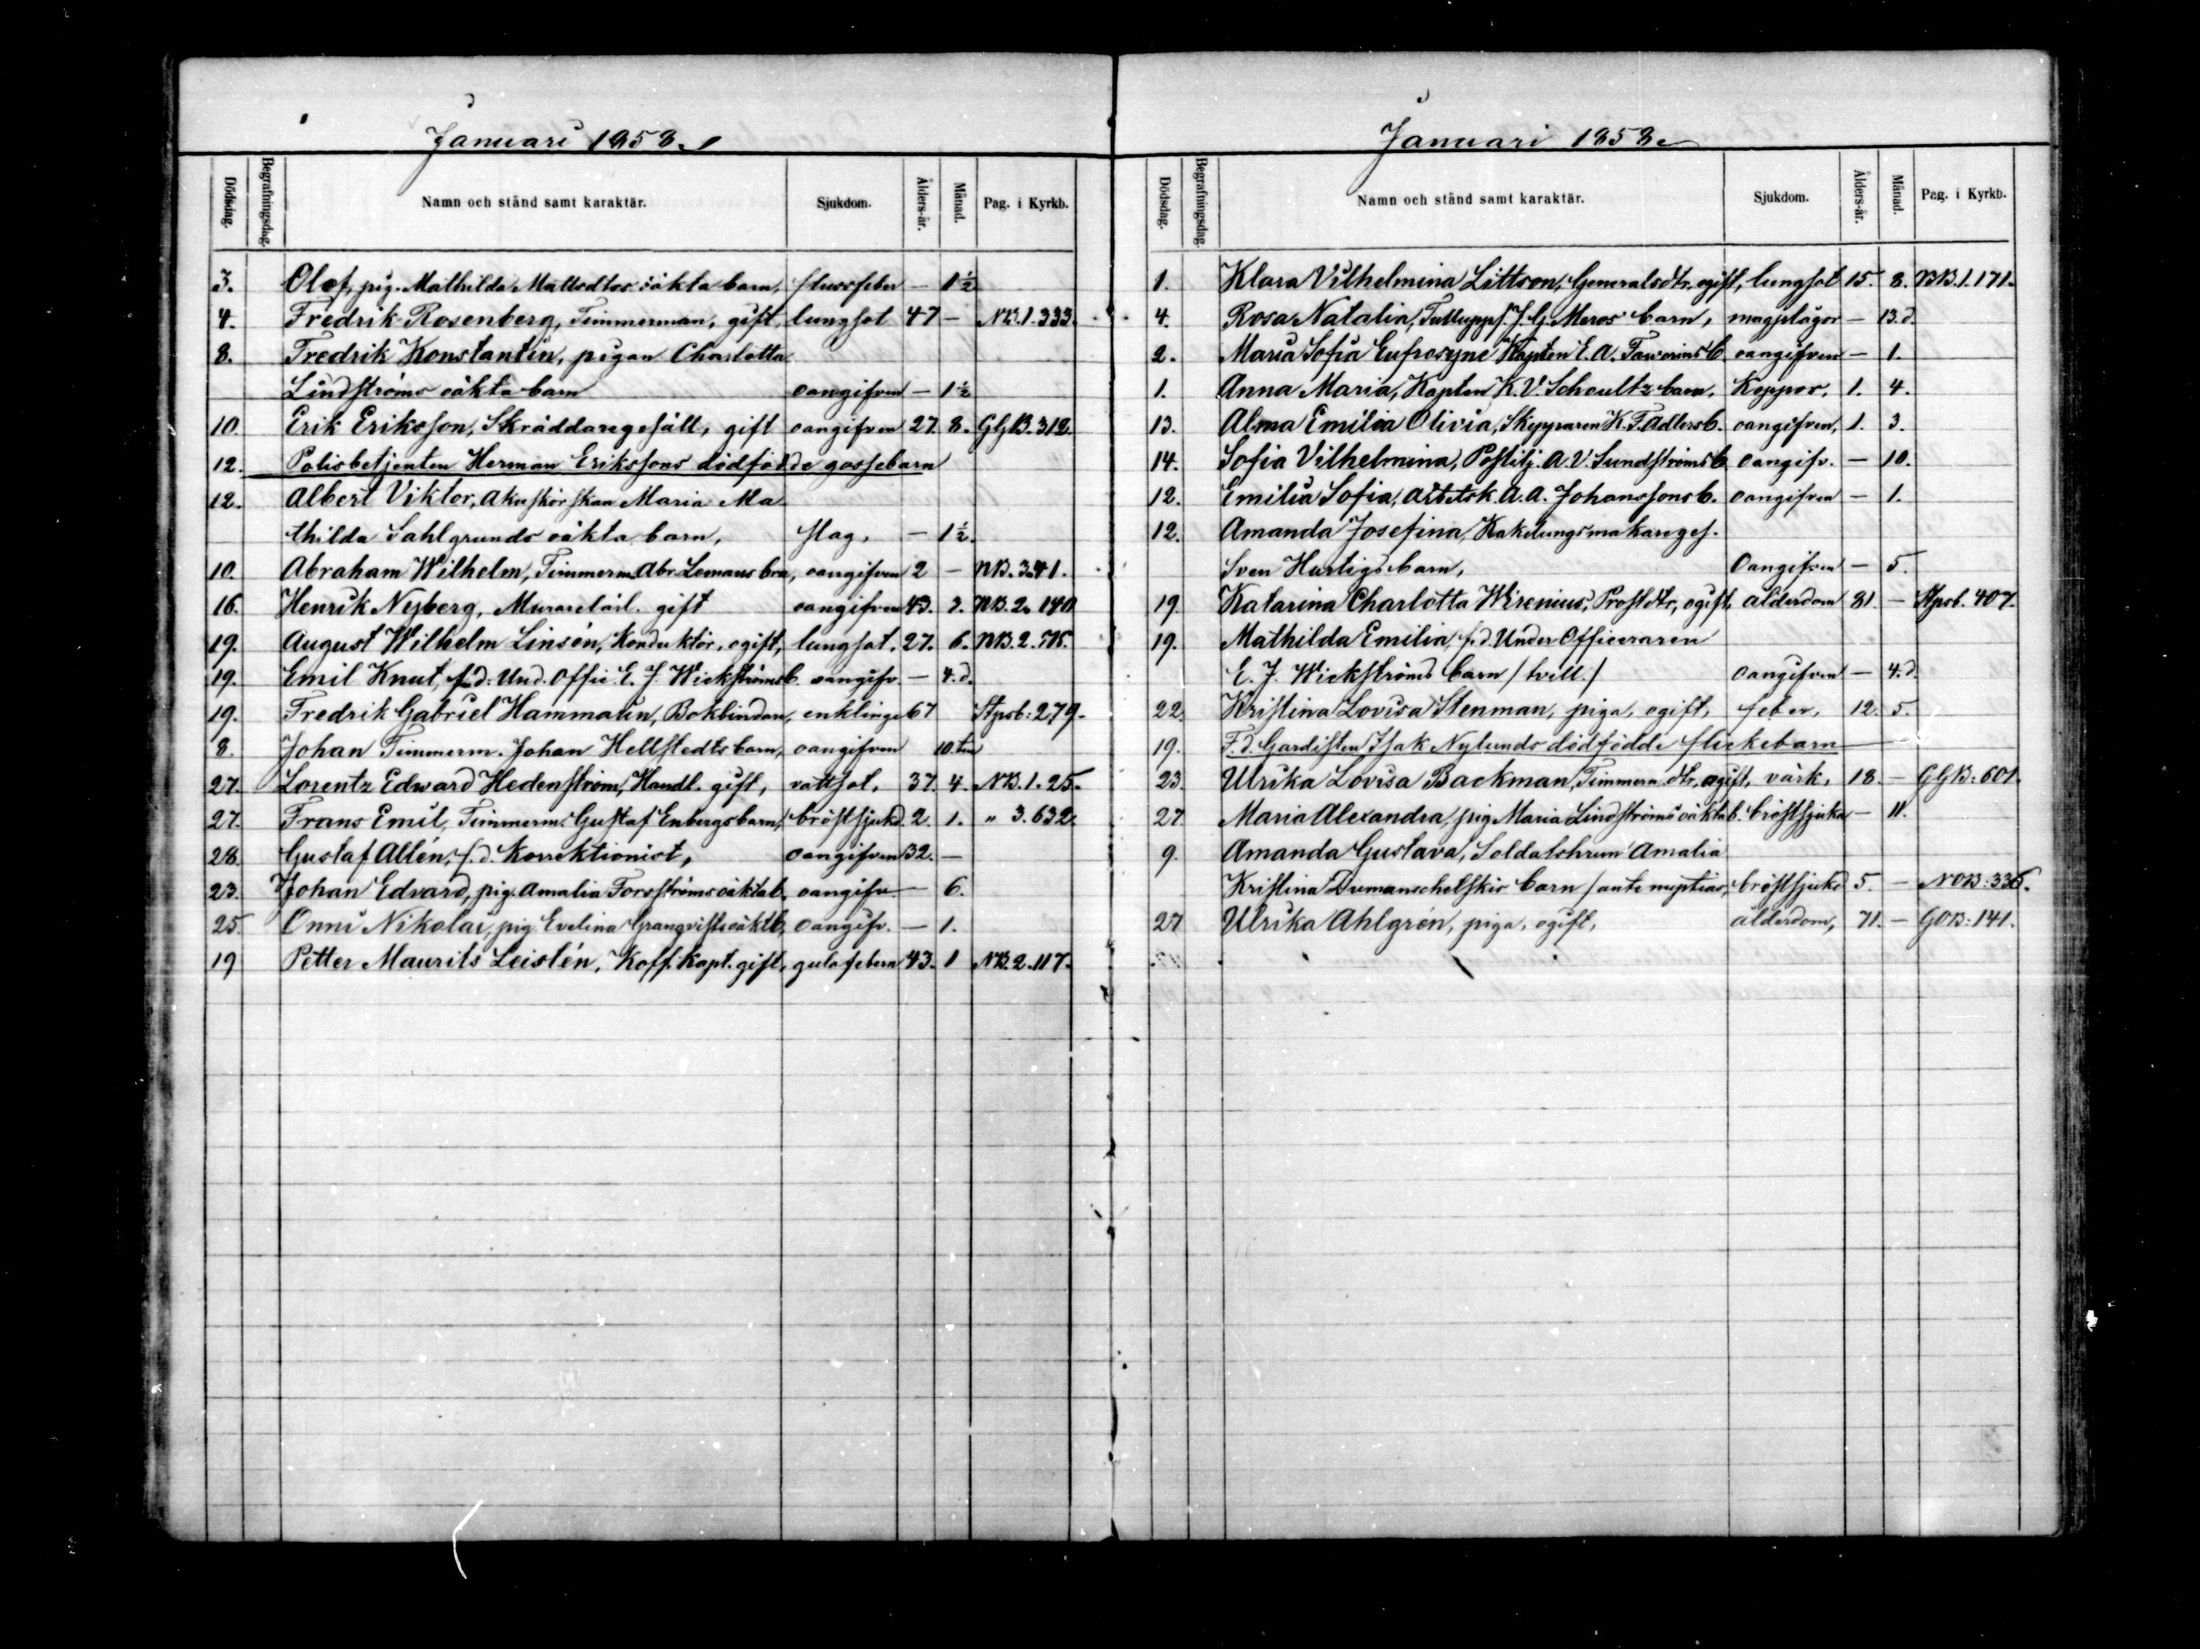 Januari 1858.
Dödsdag. Begrafningsdag. Namn och stånd samt karaktär. Sjukdom. Ålders-år. Månad. Pag. i Kyrkb.
3. Olof, pig. Mathilda Mattsdtos oäkta barn, flussfeber — 1½
4. Fredrik Rosenberg, Timmerman, gift, lungsot 47 — NB.1.333.
8. Fredrik Konstantin, pigan Charlotta
Lindströms oäkta barn oangifven — 1½
10. Erik Eriksson, Skräddaregesäll, gift oangifven 27. 8. GGB.312.
12. Polisbetjenten Herman Erikssons dödfödde gossebarn
12. Albert Viktor, Akuskörskan Maria Ma
thilda Sahlgrunds oäkta barn, slag, — 1½.
10. Abraham Wilhelm, Timmerm. Abr. Lemans brn, oangifven 2 — NB.3.41.
16. Henrik Nyberg, Murarelärl. gift oangifven 43. 2. NB.2.140
19. August Wilhelm Linsén, Konduktör, ogift, lungsot, 27. 6. NB.2.515.
19. Emil Knut, f.d. Und. Offic. E. J. Wickströms b. oangifv. — 4.d.
19. Fredrik Gabriel Hammalin, Bokbindare, enkling 67 Stpsb: 279.
8. Johan Timmerm. Johan Hellstedts barn, oangifven 10.tim
27. Lorentz Edward Hedenström, Handl. gift, vattsot, 37. 4. NB.1.25.
27. Frans Emil, Timmerm. Gustaf Enbergs barn, bröstsjukd. 2. 1. " 3.632.
28. Gustaf Allén, f.d. Korrektionist, oangifven 32. —
23. Johan Edvard, pig. Amalia Forsströms oäkta b. oangifv. — 6.
25. Onni Nikolai, pig. Evelina Granqvists oäkt b. oangifv. — 1.
19 Petter Maurits Leistén, Koff. Kapt. gift, gula febern 43. 1 NB.2.117.
Januari 1858.
Dödsdag. Begrafningsdag. Namn och stånd samt karaktär. Sjukdom. Ålders-år. Månad. Pag. i Kyrkb.
1. Klara Vilhelmina Littson, Generalsdtr. ogift, lungsot 15. 8. BB.1.171.
4. Rosa Natalia, Tullupps. J. G. Meros barn, magplågor — 13.d.
2. Maria Sofia Eufrosyne Kapten E. A. Tawerins b. oangifven — 1.
1. Anna Maria, Kapten K. V. Schoultz barn, Koppor, 1. 4.
13. Alma Emilia Olivia, Skepparen K. F. Adlers b. oangifven, 1. 3.
14. Sofia Vilhelmina, Postilj. A. V. Sundströms b. oangifv. — 10.
12. Emilia Sofia, Arbetsk. A. A. Johanssons b. oangifven — 1.
12. Amanda Josefina, Kakelungsmakareges.
Sven Hurtigs barn, Oangifven — 5.
19. Katarina Charlotta Wirenius, Prostdtr, ogift, ålderdom 81. — Stpsb. 407.
19. Mathilda Emilia, f.d. Under Officeraren
E. J. Wickströms barn / tvill. / oangifven — 4.d.
22. Kristina Lovisa Stenman, piga, ogift, feber, 12. 5.
19. F.d. Gardisten Isak Nylunds dödfödde flickebarn —
23. Ulrika Lovisa Backman, Timmerm. dtr, ogift, värk, 18. — GGB: 601.
27. Maria Alexandra, pig. Maria Lindströms oäkta b. bröstsjuka — 11.
9. Amanda Gustava, Soldatshrun Amalia
Kristina Dumanschelskis barn / ante nuptias, bröstsjukd 5. — NOB: 336.
27 Ulrika Ahlgrén, piga, ogift, ålderdom, 71. — GOB: 141.